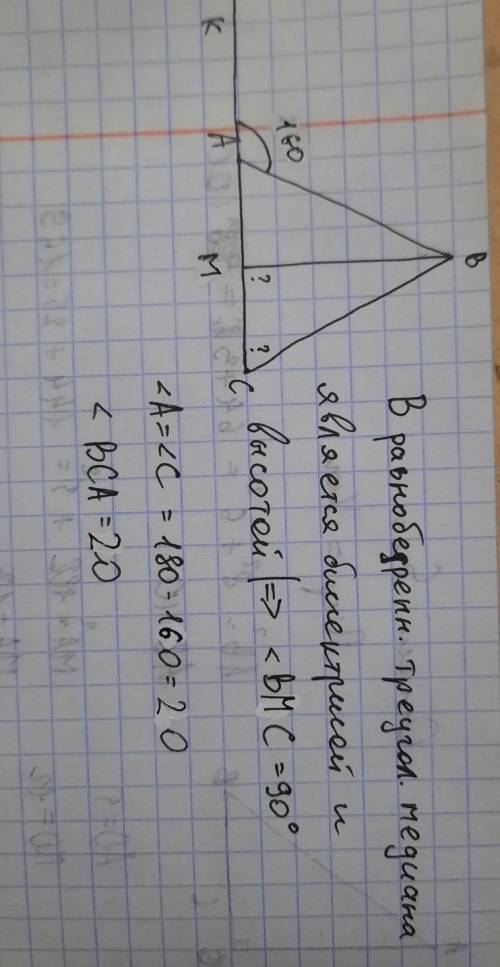 K
A
160
M
?
C
?
B
В равнобедренн. треугол. медиана
является биссектрисой и
высотой |=> <BMC = 90°
<A = <C = 180 - 160 = 20
< BCA = 20